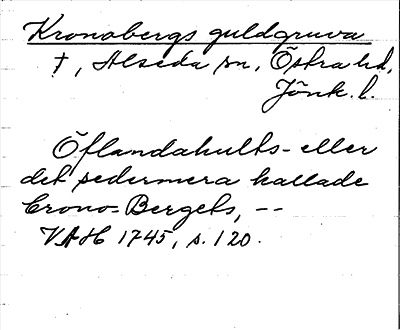 Kronobergs guldgruva
†, Alseda sn, Östra hd,
Jönk. l.
Öflandahults- eller
det sedermera kallade
Crono-Bergets, --
VAH 1745, s. 120.